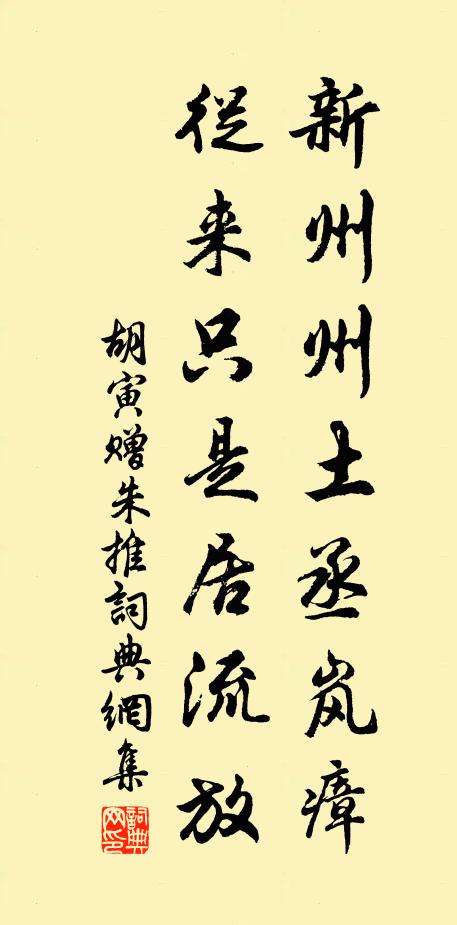 新州州土丞岚瘴
從来只是居流放
胡寅赠朱推詞典網集
詞典网印